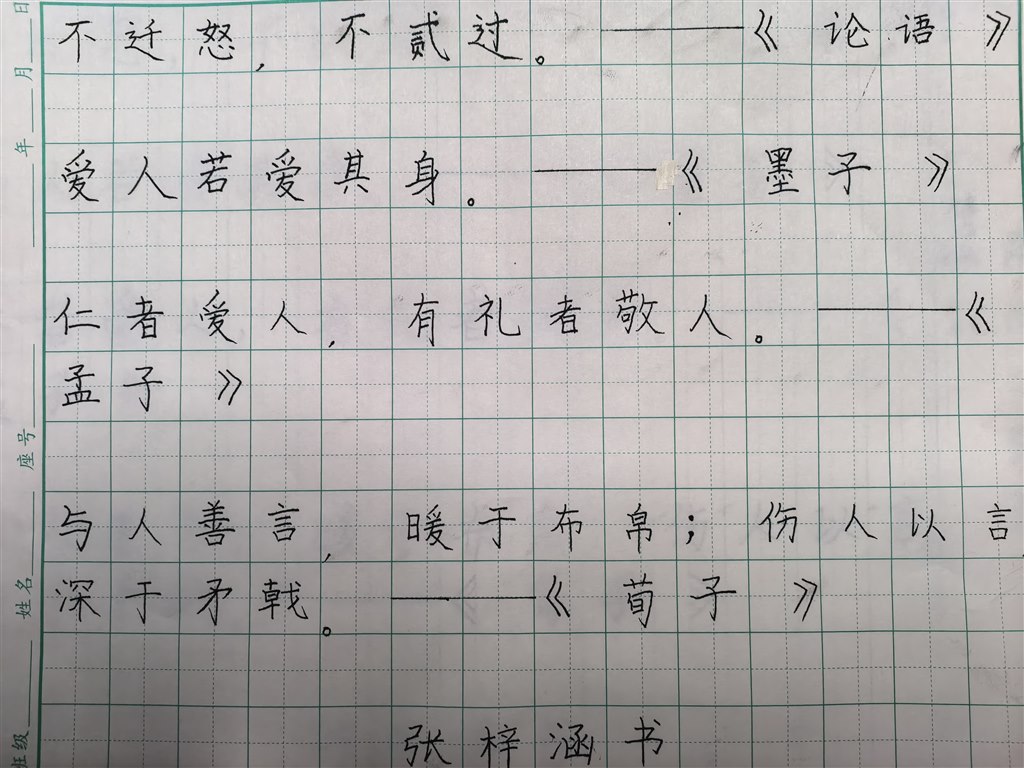 不迁怒，不贰过。——《论语》
爱人若爱其身。——《墨子》
仁者爱人，有礼者敬人。——《
孟子》
与人善言，暖于布帛；伤人以言，
深于矛戟。——《荀子》
张梓涵书
班级 姓名 座号 年 月 日